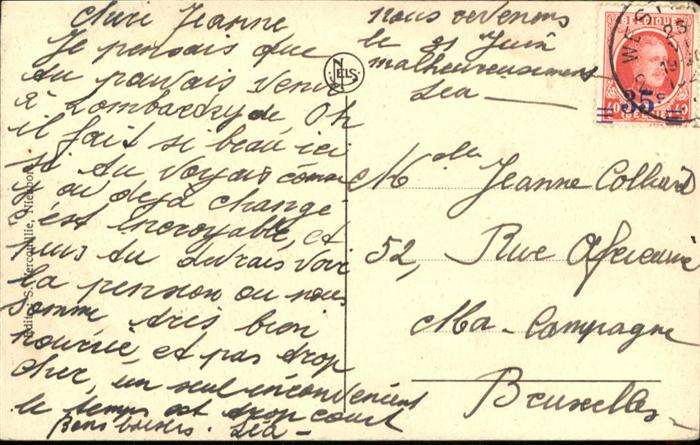 chère Jeanne
Je pensais que
tu pourrais venir
à Lombardzyde Oh
il fait si beau ici
si tu voyais comme
on a déjà changé
c'est incroyable, et
puis tu devrais voir
la pension ou nous
somme très bien
nourrie, et pas trop
cher, un seul inconvenient
le temps est trop court
Bons baisers. Léa —
nous revenons
le 21 Juin
malheureusement
Léa —
NELS
BELGIQUE
35
Mlle Jeanne Colhard
52, Rue Africaine
Ma-Campagne
Bruxelles